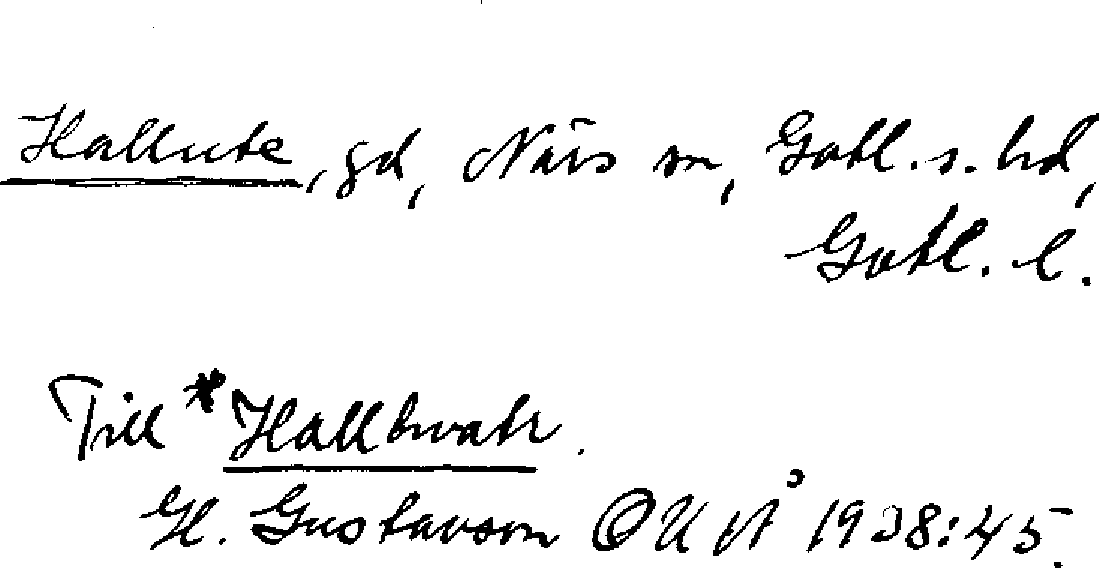 Hallute, gd, När sn, Gotl. s. hd,
Gotl. l.
Till *Hallhvatr.
H. Gustavson OUÅ 1938:45.